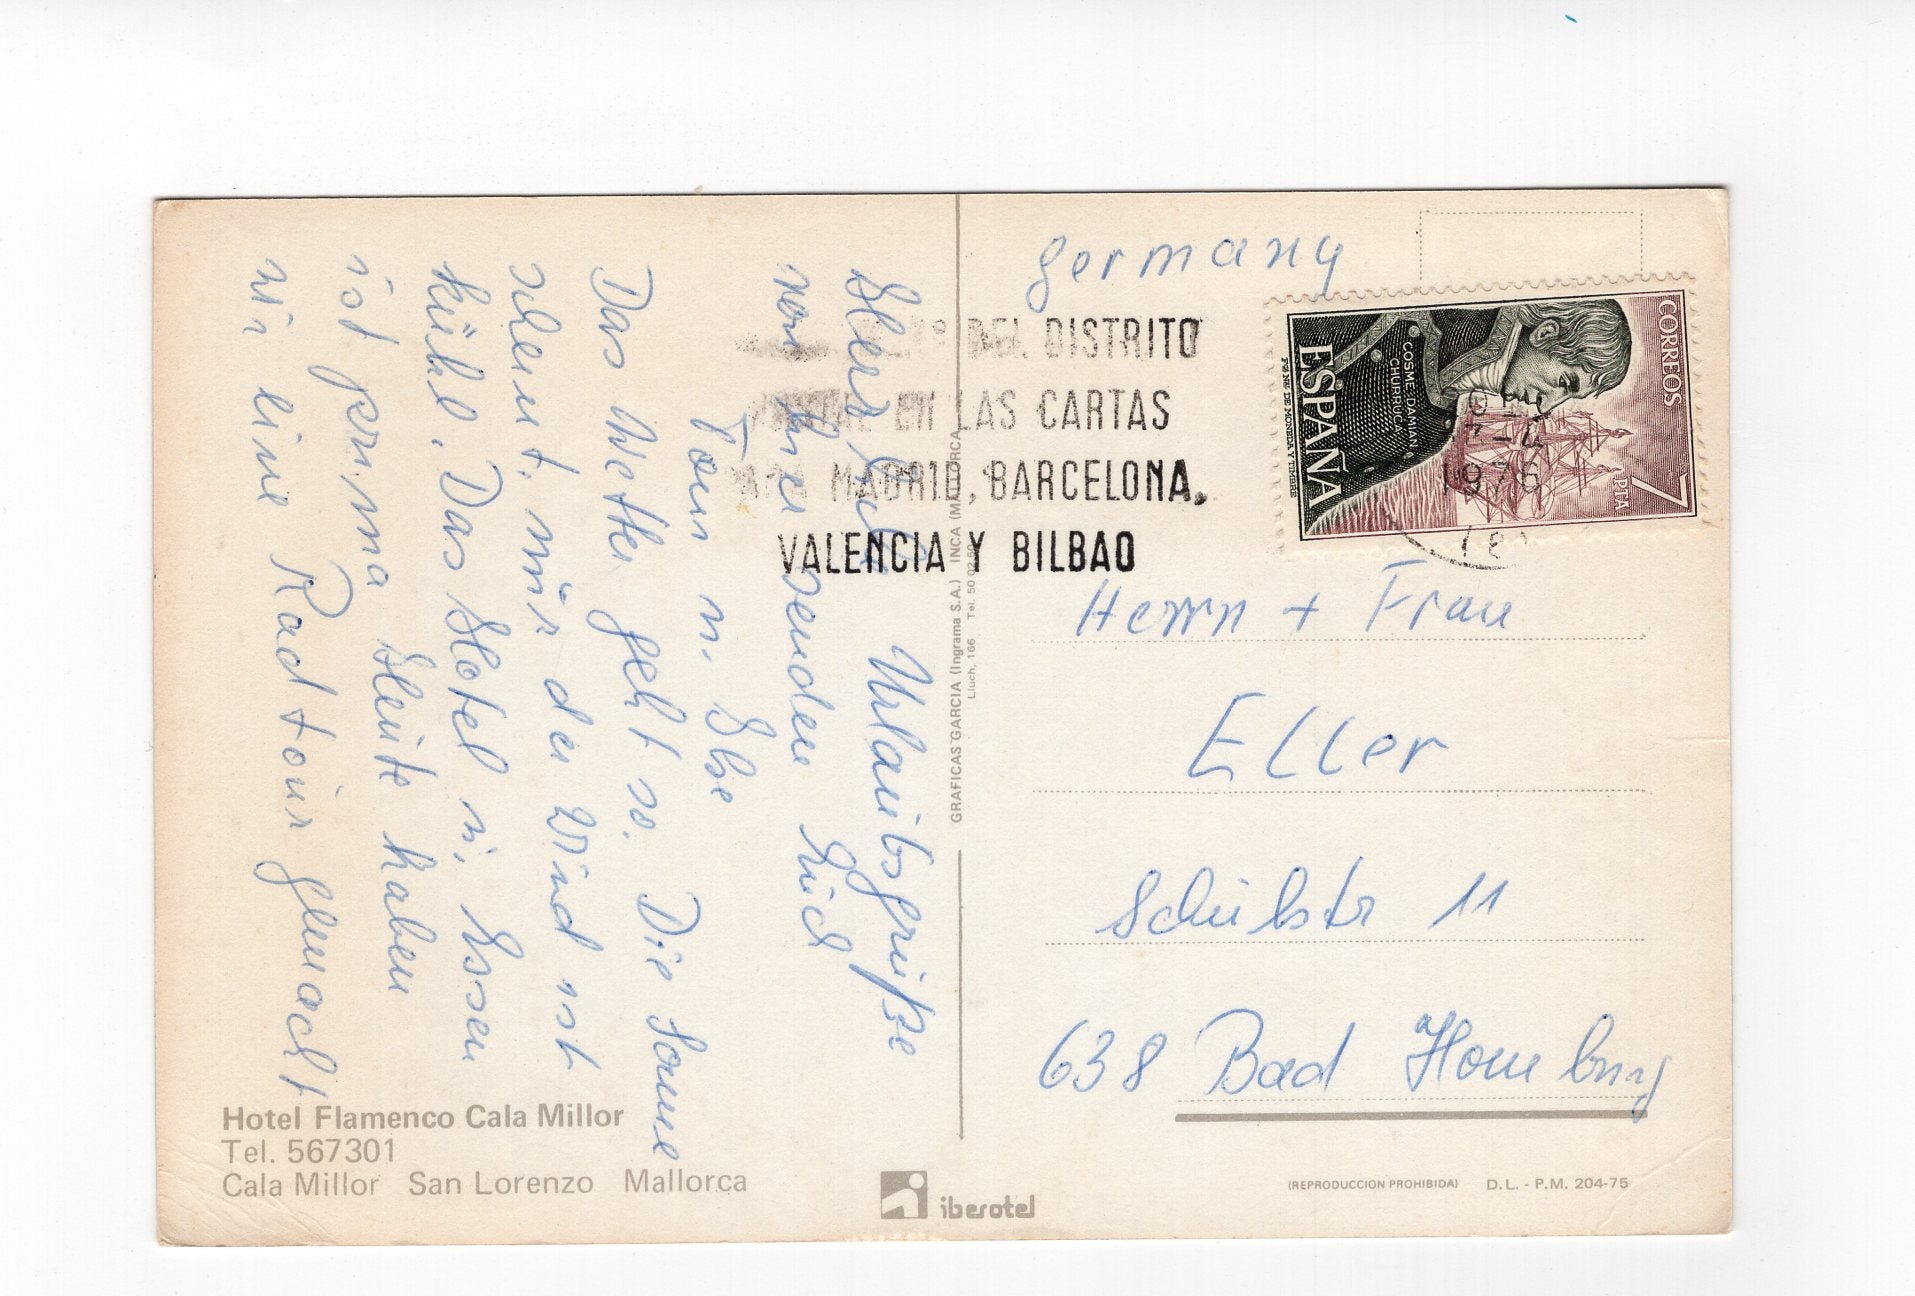 Herzliche Urlaubsgrüße
von hier senden Euch
Toni u. Ilse
Das Wetter geht so. Die Sonne
scheint, nur der Wind ist
kühl. Das Hotel u. Essen
ist prima. Heute haben
wir eine Radtour gemacht
Hotel Flamenco Cala Millor
Tel. 567301
Cala Millor San Lorenzo Mallorca
iberotel
GRAFICAS GARCIA (Ingrama S.A.) INCA (MALLORCA
Lluch, 166 Tel. 50
DEL DISTRITO
EN LAS CARTAS
MADRID, BARCELONA,
VALENCIA Y BILBAO
germany
CORREOS
7 PTA
COSME DAMIAN
CHURRUCA
ESPAÑA
F.N.M.T.
1976
Herrn + Frau
Eller
Schulstr 11
638 Bad Homburg
(REPRODUCCION PROHIBIDA) D.L. - P.M. 204-75